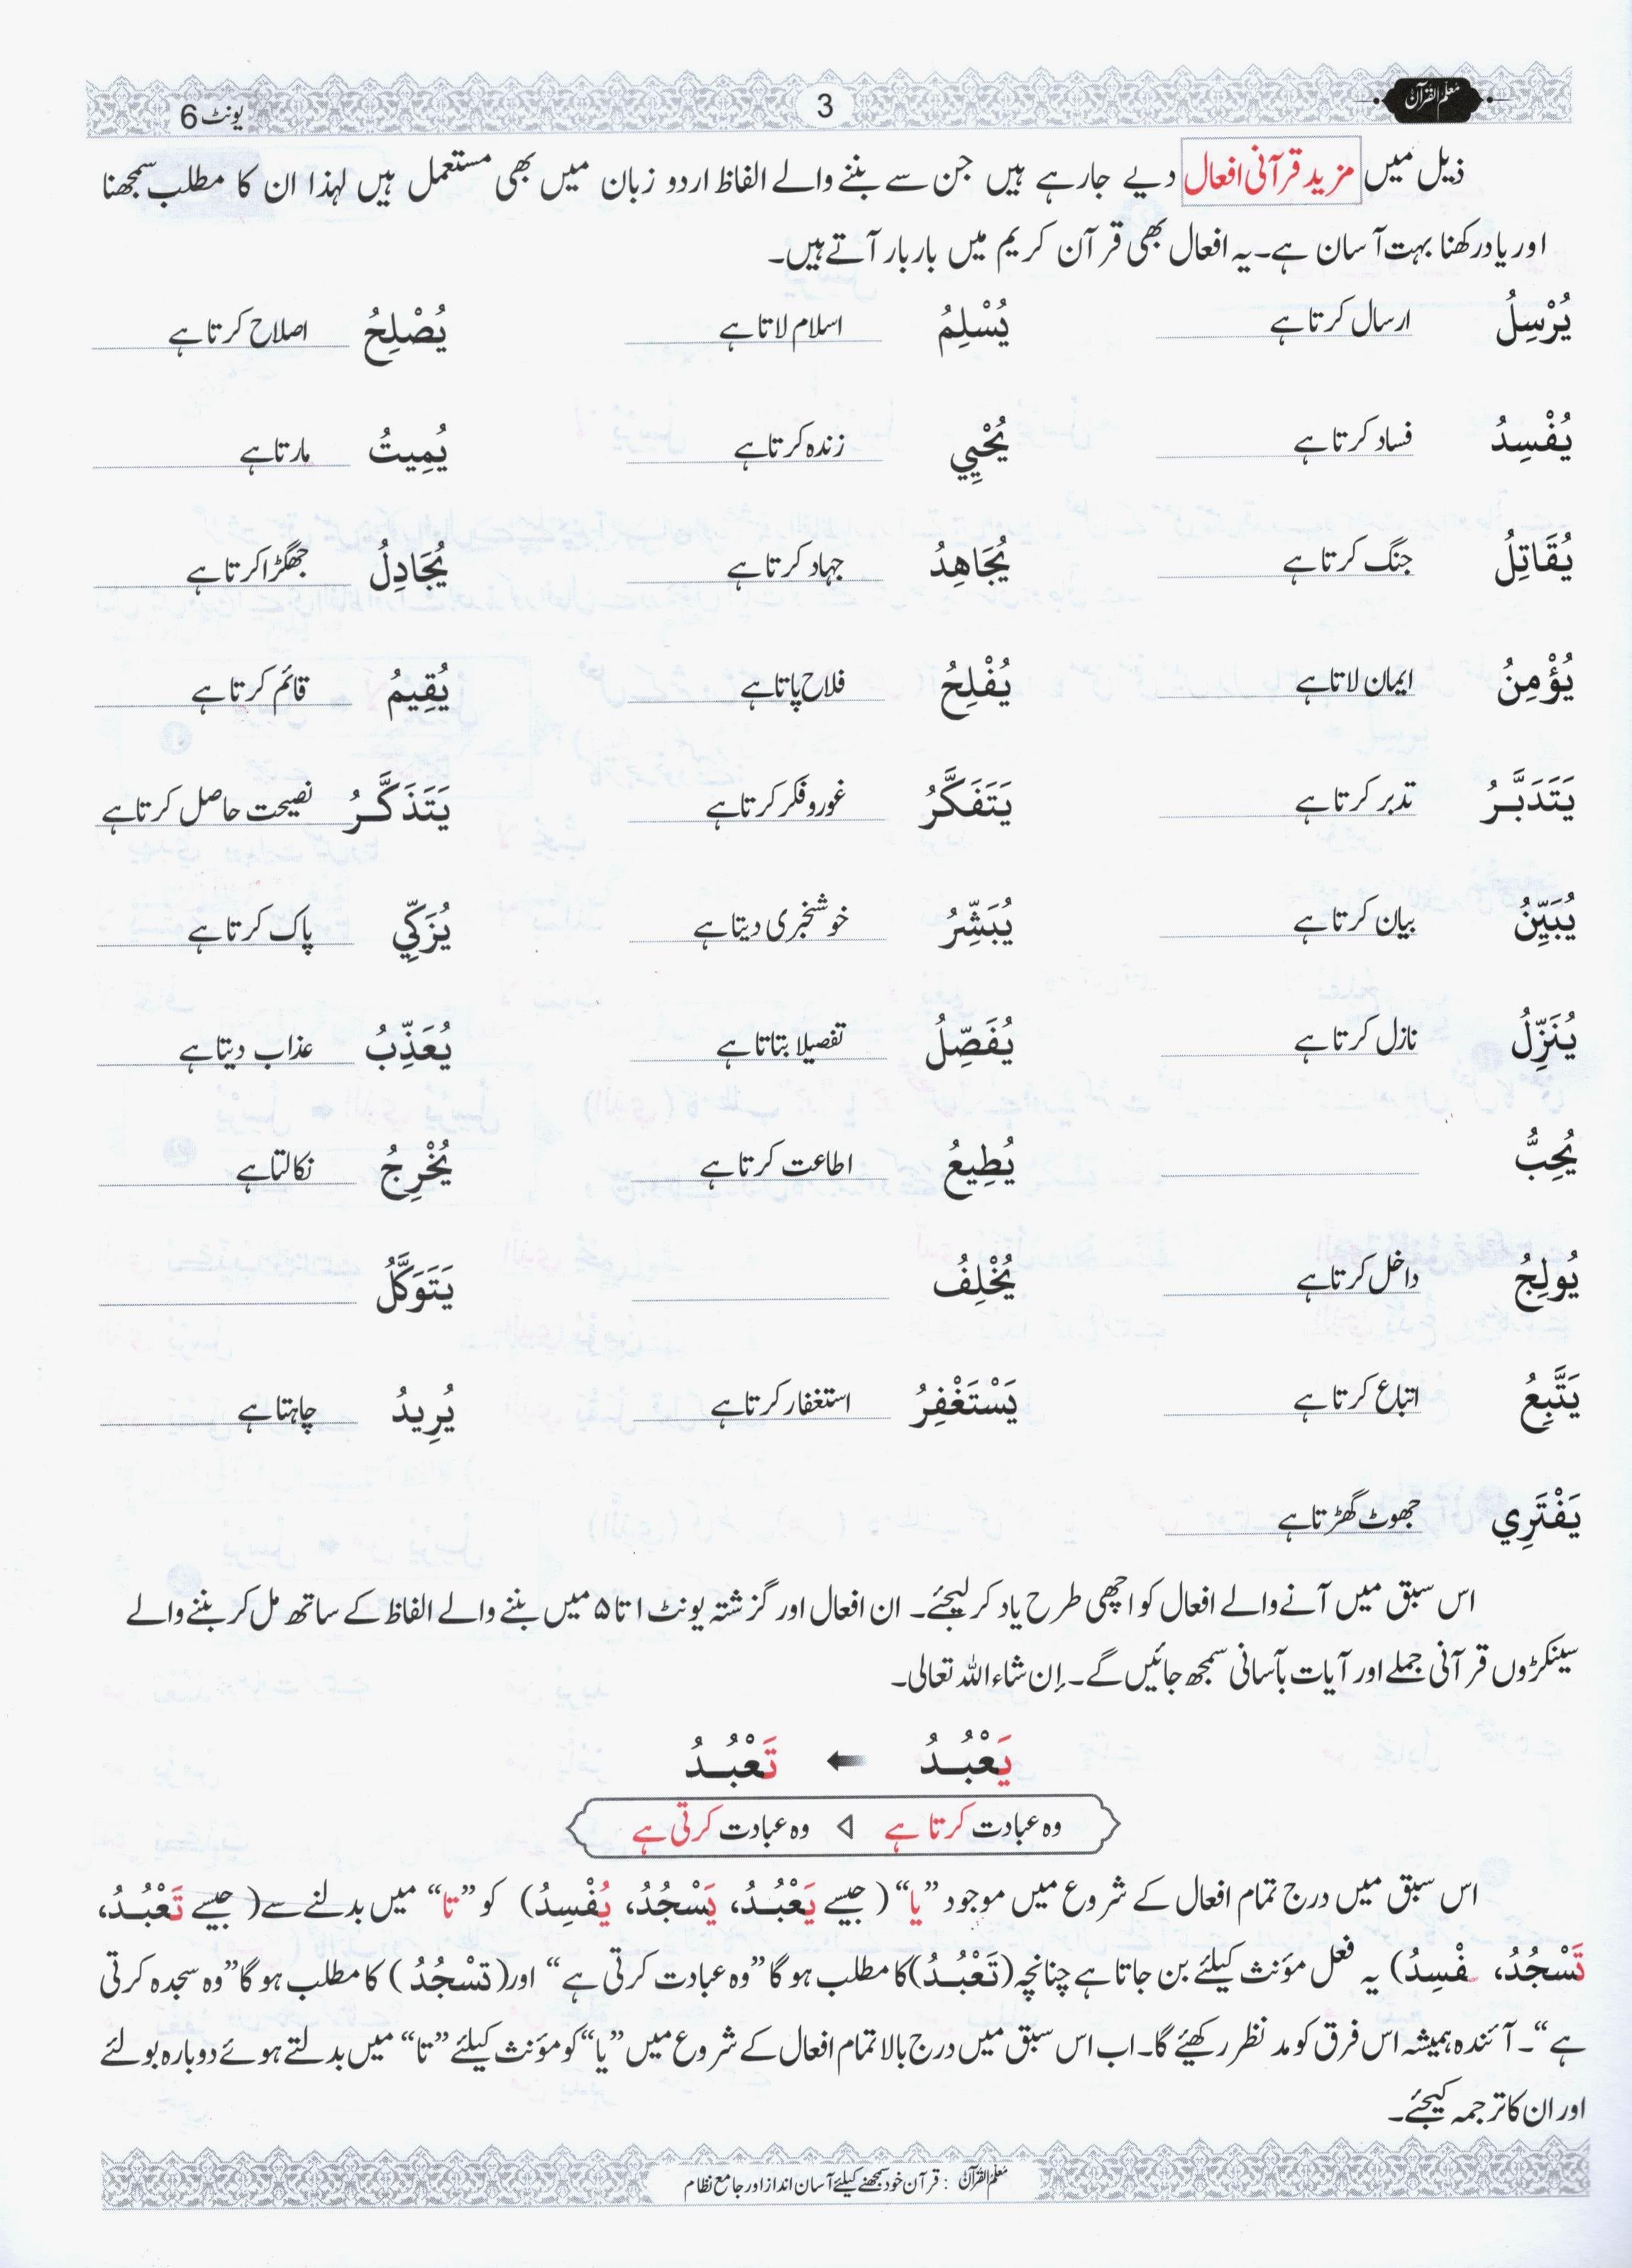 معلم القرآن 3 یونٹ 6
ذیل میں مزید قرآنی افعال دیے جارہے ہیں جن سے بننے والے الفاظ اردو زبان میں بھی مستعمل ہیں لہذا ان کا مطلب سمجھنا
اور یاد رکھنا بہت آسان ہے۔ یہ افعال بھی قرآن کریم میں بار بار آتے ہیں۔
يُرْسِلُ ارسال کرتا ہے يُسْلِمُ اسلام لاتا ہے يُصْلِحُ اصلاح کرتا ہے
يُفْسِدُ فساد کرتا ہے يُحْيِي زندہ کرتا ہے يُمِيتُ مارتا ہے
يُقَاتِلُ جنگ کرتا ہے يُجَاهِدُ جہاد کرتا ہے يُجَادِلُ جھگڑا کرتا ہے
يُؤْمِنُ ایمان لاتا ہے يُفْلِحُ فلاح پاتا ہے يُقِيمُ قائم کرتا ہے
يَتَدَبَّرُ تدبر کرتا ہے يَتَفَكَّرُ غور و فکر کرتا ہے يَتَذَكَّرُ نصیحت حاصل کرتا ہے
يُبَيِّنُ بیان کرتا ہے يُبَشِّرُ خوشخبری دیتا ہے يُزَكِّي پاک کرتا ہے
يُنَزِّلُ نازل کرتا ہے يُفَصِّلُ تفصیلا بتاتا ہے يُعَذِّبُ عذاب دیتا ہے
يُحِبُّ يُطِيعُ اطاعت کرتا ہے يُخْرِجُ نکالتا ہے
يُولِجُ داخل کرتا ہے يُخْلِفُ يَتَوَكَّلُ
يَتَّبِعُ اتباع کرتا ہے يَسْتَغْفِرُ استغفار کرتا ہے يُرِيدُ چاہتا ہے
يَفْتَرِي جھوٹ گھڑتا ہے
اس سبق میں آنے والے افعال کو اچھی طرح یاد کر لیجئے۔ ان افعال اور گزشتہ یونٹ ۱ تا ۵ میں بننے والے الفاظ کے ساتھ مل کر بننے والے
سینکڑوں قرآنی جملے اور آیات بآسانی سمجھ جائیں گے۔ إن شاء اللہ تعالی۔
يَعْبُدُ ← تَعْبُدُ
وہ عبادت کرتا ہے ◁ وہ عبادت کرتی ہے
اس سبق میں درج تمام افعال کے شروع میں موجود ”یا“ (جیسے يَعْبُدُ، يَسْجُدُ، يُفْسِدُ) کو ”تا“ میں بدلنے سے (جیسے تَعْبُدُ،
تَسْجُدُ، فْسِدُ) یہ فعل مؤنث کیلئے بن جاتا ہے چنانچہ (تَعْبُدُ) کا مطلب ہو گا ”وہ عبادت کرتی ہے“ اور (تَسْجُدُ) کا مطلب ہو گا ”وہ سجدہ کرتی
ہے“۔ آئندہ ہمیشہ اس فرق کو مد نظر رکھئے گا۔ اب اس سبق میں درج بالا تمام افعال کے شروع میں ”یا“ کو مؤنث کیلئے ”تا“ میں بدلتے ہوئے دوبارہ بولئے
اور ان کا ترجمہ کیجئے۔
معلم القرآن : قرآن خود سمجھنے کیلئے آسان انداز اور جامع نظام